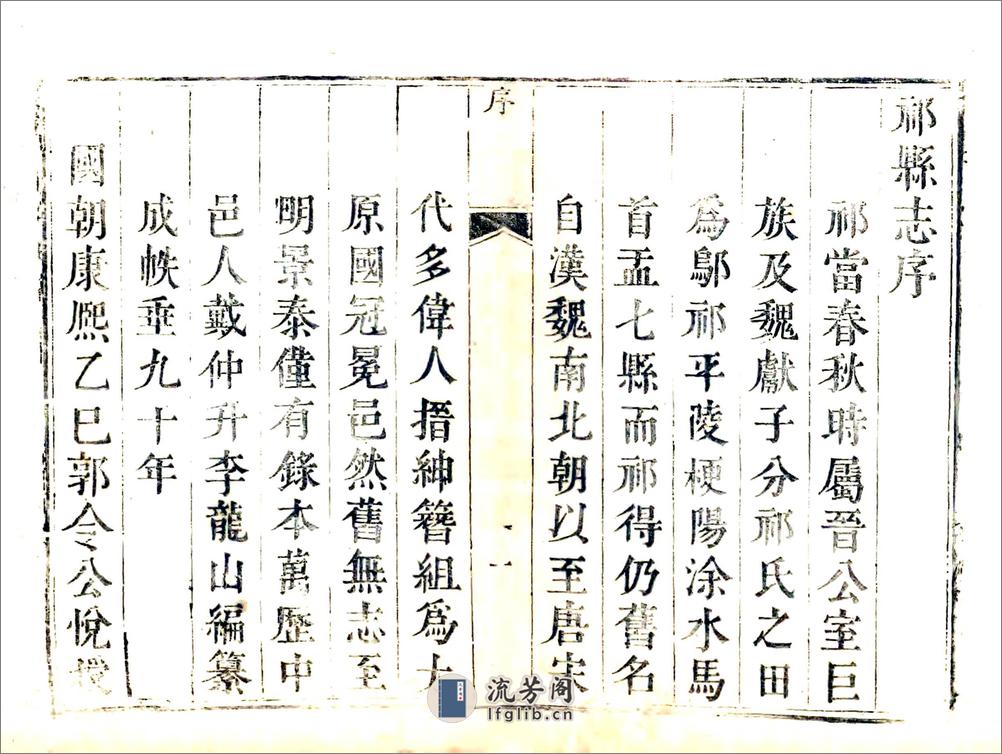 祁縣志序
祁當春秋時屬晉公室巨
族及魏獻子分祁氏之田
爲鄔祁平陵梗陽涂水馬
首盂七縣而祁得仍舊名
自漢魏南北朝以至唐宋
序
一
代多偉人搢紳簪組爲大
原國冠冕邑然舊無志至
明景泰僅有錄本萬歷中
邑人戴仲升李龍山編纂
成帙垂九十年
國朝康熙乙巳郭令公悅
流芳阁
lfglib.cn